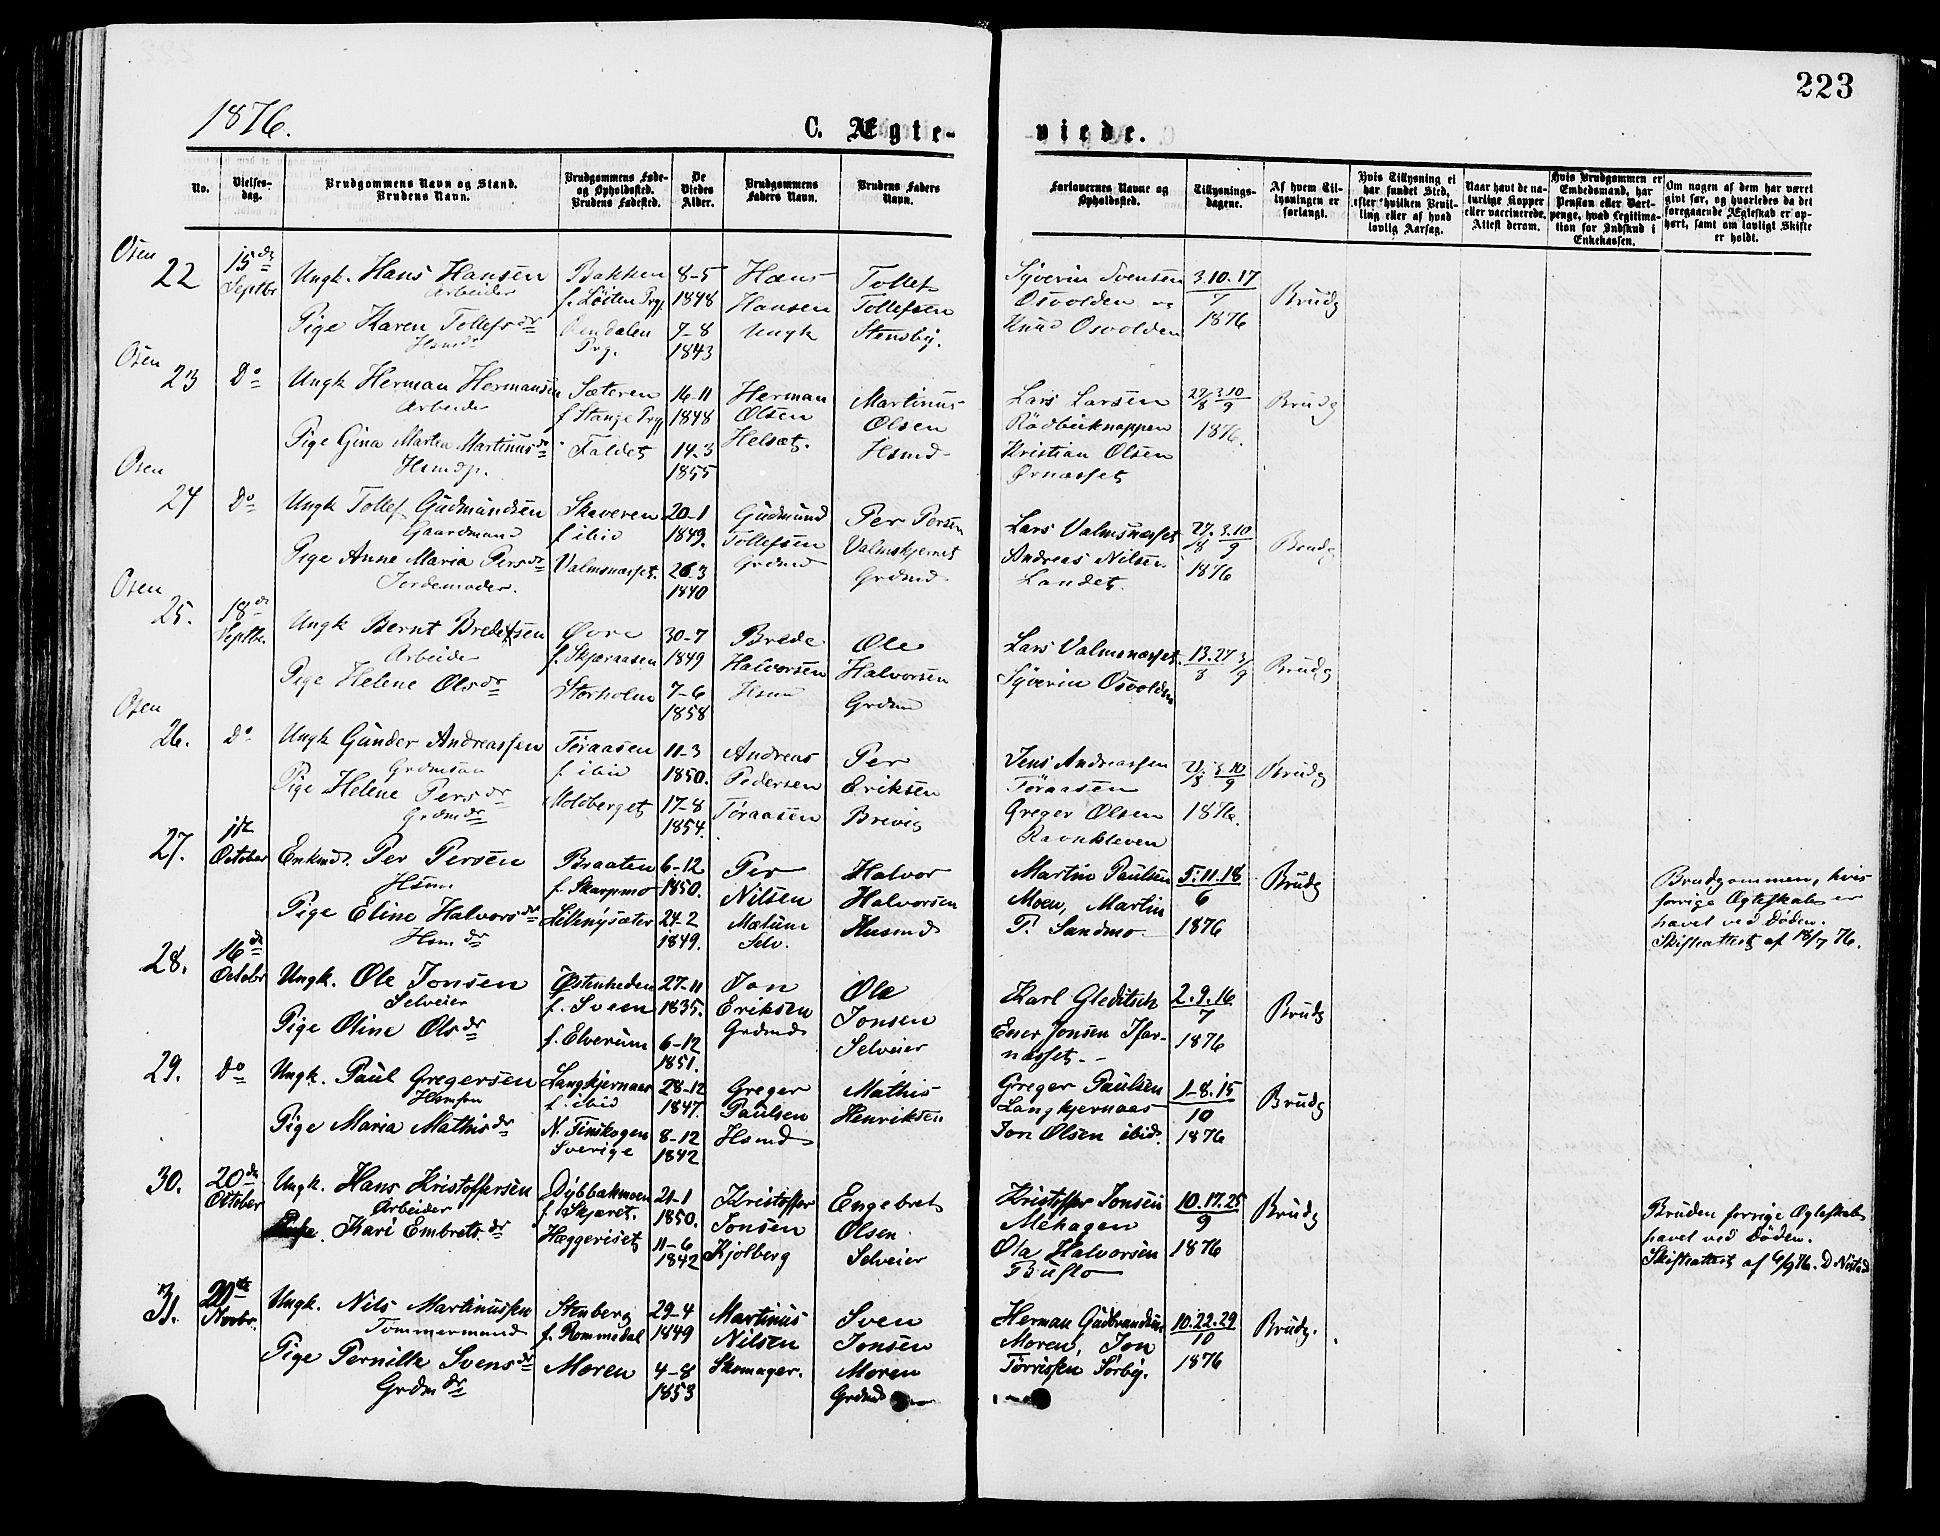 223
1876.
C. Ægte-
viede.
No.
Vielses-
dag.
Brudgommens Navn og Stand.
Brudens Navn.
Brudgommens Føde-
og Opholdssted.
Brudens Fødested.
De
Viedes
Alder.
Brudgommens
Faders Navn.
Brudens Faders
Navn.
Forlovernes Navne og
Opholdssted.
Tillysnings-
dagene.
Af hvem Til-
lysningen er
forlangt.
Hvis Tillysning ei
har fundet Sted,
efter hvilken Bevil-
ling eller af hvad
lovlig Aarsag.
Naar havt de na-
turlige Kopper
eller vaccinerede.
Attest derom.
Hvis Brudgommen er
Embedsmand, har
Pension eller Vart-
penge, hvad Legitima-
tion for Indskud i
Enkekassen.
Om nogen af dem har været
gift før, og hvorledes da det
foregaaende Ægteskab er op-
hørt, samt om lovligt Skifte
er holdt.
Osen
22
15de
Septbr
Ungk. Hans Hansen
Arbeider
Pige Karen Tollefsdr
Hsmdr
Bakken
f. Løiten Prg.
Prg.
8-5
1848
7-8
1843
Hans
Hansen
Ungk
Tollef
Tollefsen
Stensby.
Syverin Svensen
Osvolden og
Knud Osvolden
3.10.17
7
1876
Brudg
Osen
23
Do
Ungk Herman Hermansen
Arbeider
Pige Gina Martea Martinusdr
Hsmdp.
Sæteren
f Stange Prg
Faldet
16-11
1848
14-3
1855
Herman
Olsen
Helsæt.
Martinus
Olsen
Hsmd
Lars Larsen
Rødbæknappen
Kristian Olsen
Ørnæsset
27/8 3.10/9
1876.
Brudg
Osen
24
Do
Ungk Tollef Gudmundsen
Gaardmand
Pige Anne Maria Persdr
Jordemoder.
Skaveren
f. ibid
Valmsnæsset.
20-1
1849.
26-3
1840
Gudmund
Tollefsen
Grdmd
Per Persen
Valmskjernet
Grdmd
Lars Valmsnæsset
Andreas Nilsen
Landet.
27/8 3.10/9
1876
Brudg
Osen
25.
18de
Septbr.
Ungk Bernt Bredesen
Arbeider
Pige Helene Olsdr
Øvre
f. Skjæraasen
Storholm
30-7
1849
7-6
1858
Brede
Halvorsen
Hsmd
Ole
Halvorsen
Grdmd
Lars Valmsnæsset
Syverin Osvolden
13.27/8 3/9
Brudg
Osen
26.
Do
Ungk Gunder Andreassen
Grdmsøn
Pige Helene Persdr
Grdmdr
Tøraasen
f. ibid
Moldberget
11-3
1850.
17-8
1854.
Andreas
Pedersen
Tøraasen
Per
Eriksen
Brevig
Jens Andreassen
Tøraasen
Greger Olsen
Ravnkleven
27/8 3.10/9
1876.
Brudg
27.
1ste
October
Enkmd. Per Persen
Hsmd
Pige Eline Halvorsdr
Hsmdr
Braaten
f. Skarpmo
Lillenysæter
6-12
1850.
24-2
1849.
Per
Nilsen
Mælum
Selv.
Halvor
Halvorsen
Husmd
Martin Paulsen
Moen, Martin
P. Sandmo
5.11.18
6
1876
Brudg
Brudgommen, hvis
forrige Ægteskab er
hævet ved Døden.
Skifteattest af 18/7 76.
28.
16de
Octobr
Ungk. Ole Jonsen
Selveier
Pige Oline Olsdr
Østenheden
f. Sveen
f. Elverum
27-11
1835.
6-12
1851.
Jon
Eriksen
Grdmd
Ole
Jonsen
Selveier
Karl Gleditsch
Ener Jonsen Ifar-
næsset.
2.9.16
7
1876
Brudg
29.
Do
Ungk. Paul Gregersen
Hsmsøn
Pige Maria Mathisdr
Langkjernaas
f. ibid
N. Finskogen
Sverige
28-12
1847.
8-12
1842
Greger
Paulsen
Hsmd
Mathis
Henriksen
Greger Paulsen
Langkjernaas
Jon Olsen ibid.
1-8.15
10
1876
Brudg
30.
20de
October
Ungk. Hans Kristoffersen
Arbeider
Kari Embretsdr
Dybbakmoen
f. Skjæret.
Hæggeriset
21-1
1850.
11-6
1842
Kristoffer
Jonsen
Kjølberg
Engebret
Olsen
Selveier
Kristoffer Jonsen
Mehagen
Ola Halvorsen
Buflo
10.17.25
9
1876
Brudg
Bruden forrige Ægteskab
hævet ved Døden.
Skifteattest af 6/9 76. D Nistad
31.
20de
Novbr.
Ungk. Nils Martinussen
Tømmermand
Pige Pernille Svensdr
Grdmdr
Stenberg
f. Rommedal
Moren
29-4
1849
4-8
1853
Martinus
Nilsen
Skomager.
Sven
Jonsen
Moren
Grdmd
Herman Gudbrandsen
Moren, Jon
Tørrissen Sørby.
10.22.29
10
1876
Brudg.